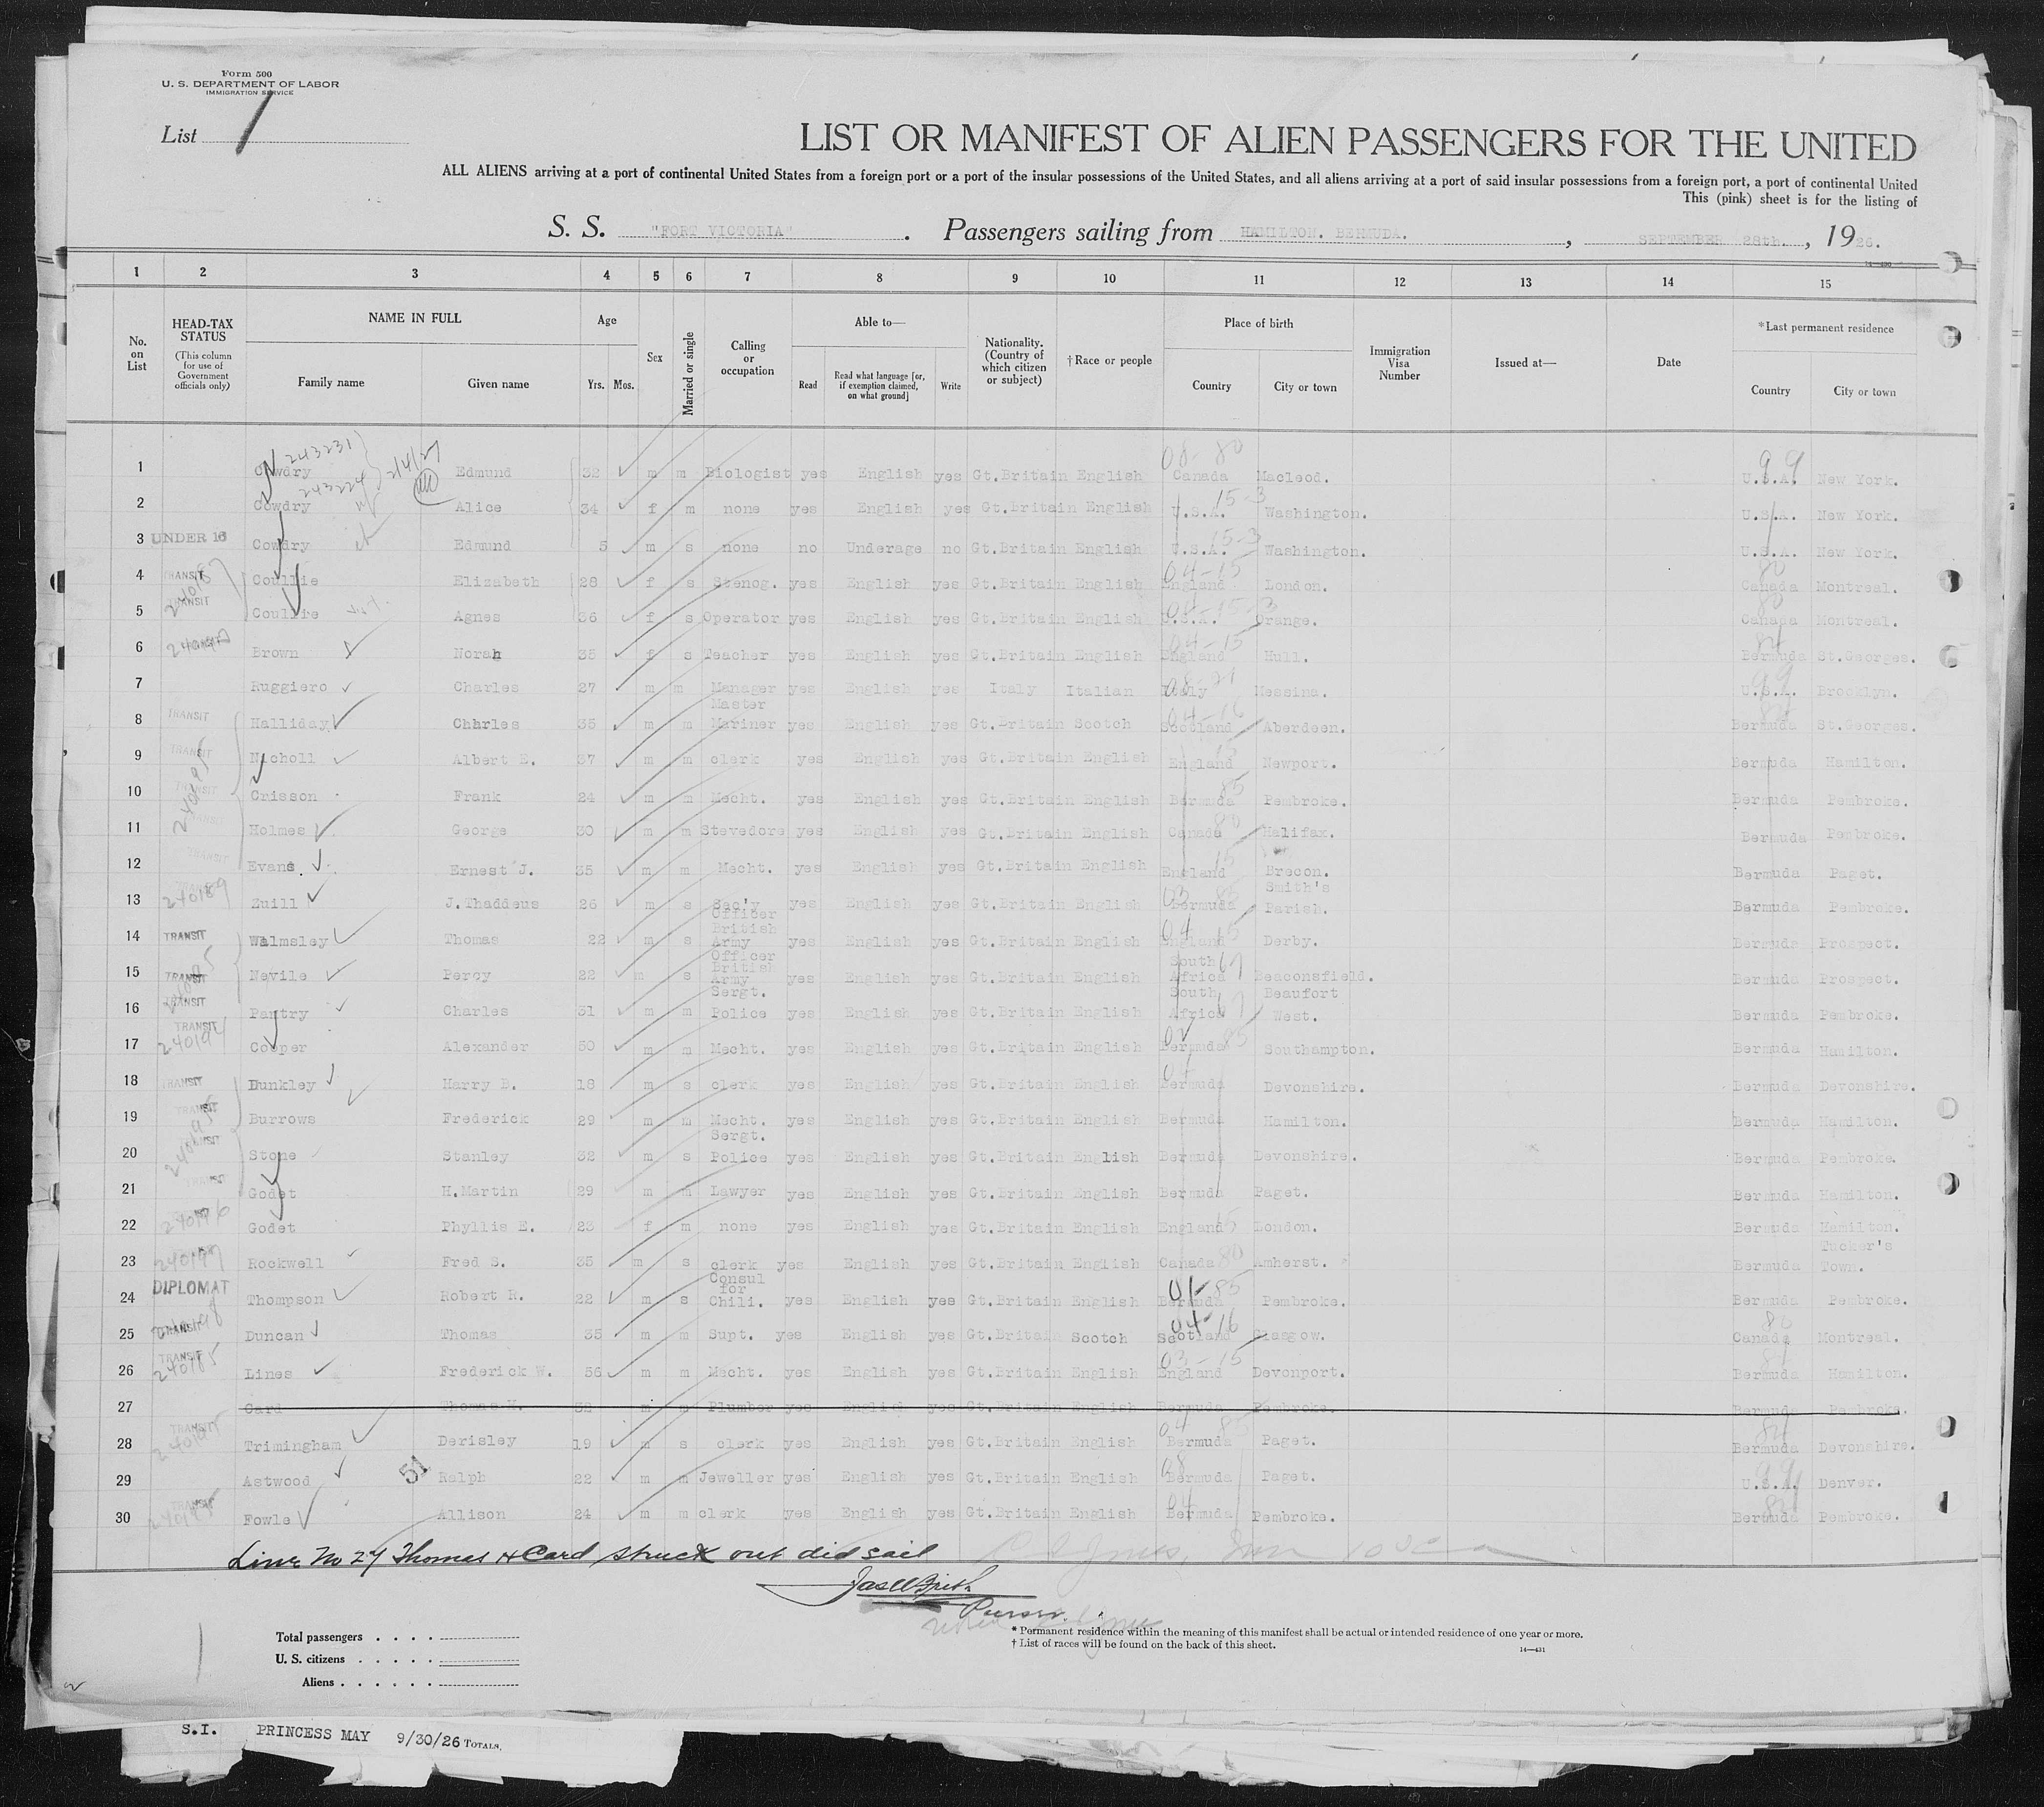 Form 500
U. S. DEPARTMENT OF LABOR
IMMIGRATION SERVICE
List 1
LIST OR MANIFEST OF ALIEN PASSENGERS FOR THE UNITED
ALL ALIENS arriving at a port of continental United States from a foreign port or a port of the insular possessions of the United States, and all aliens arriving at a port of said insular possessions from a foreign port, a port of continental United
This (pink) sheet is for the listing of
S. S. "FORT VICTORIA". Passengers sailing from HAMILTON. BERMUDA. , SEPTEMBER 28th. , 1926.
14-430
1 2 3 4 5 6 7 8 9 10 11 12 13 14 15
No. on List HEAD-TAX STATUS (This column for use of Government officials only) NAME IN FULL Family name Given name Age Yrs. Mos. Sex Married or single Calling or occupation Able to— Read Read what language [or, if exemption claimed, on what ground] Write Nationality. (Country of which citizen or subject) †Race or people Place of birth Country City or town Immigration Visa Number Issued at— Date *Last permanent residence Country City or town
243231 2/4/27 08-80 99
1 Cowdry Edmund 32 m m Biologist yes English yes Gt.Britain English Canada Macleod. U.S.A. New York.
243224 15-3
2 Cowdry Alice 34 f m none yes English yes Gt.Britain English U.S.A. Washington. U.S.A. New York.
15-3
3 UNDER 16 Cowdry Edmund 5 m s none no Underage no Gt.Britain English U.S.A. Washington. U.S.A. New York.
4 TRANSIT Coullie Elizabeth 28 f s Stenog. yes English yes Gt.Britain English 04-15 England London. 80 Canada Montreal.
5 TRANSIT Coullie Agnes 36 f s Operator yes English yes Gt.Britain English U.S.A. 15-3 Orange. 80 Canada Montreal.
6 Brown Norah 35 f s Teacher yes English yes Gt.Britain English 04-15 England Hull. 84 Bermuda St.Georges.
7 Ruggiero Charles 27 m m Manager yes English yes Italy Italian Italy Messina. 99 U.S.A. Brooklyn.
8 TRANSIT Halliday Chhrles 35 m m Master Mariner yes English yes Gt.Britain Scotch 04-16 Scotland Aberdeen. Bermuda St.Georges.
9 TRANSIT Nicholl Albert E. 37 m m clerk yes English yes Gt.Britain English England Newport. Bermuda Hamilton.
10 TRANSIT Crisson Frank 24 m m Mecht. yes English yes Gt.Britain English 85 Bermuda Pembroke. Bermuda Pembroke.
11 TRANSIT Holmes George 30 m m Stevedore yes English yes Gt.Britain English 80 Canada Halifax. Bermuda Pembroke.
12 TRANSIT Evans. Ernest J. 35 m m Mecht. yes English yes Gt.Britain English 15 England Brecon. Bermuda Paget.
13 240189 Zuill J.Thaddeus 26 m s Sec'y yes English yes Gt.Britain English 03 85 Bermuda Smith's Parish. Bermuda Pembroke.
14 TRANSIT Walmsley Thomas 22 m s Officer British Army yes English yes Gt.Britain English 04 15 England Derby. Bermuda Prospect.
15 TRANSIT Nevile Percy 22 m s Officer British Army yes English yes Gt.Britain English South Africa 67 Beaconsfield. Bermuda Prospect.
16 TRANSIT Pantry Charles 31 m m Sergt. Police yes English yes Gt.Britain English South Africa 67 Beaufort West. Bermuda Pembroke.
17 TRANSIT 240194 Cooper Alexander 50 m m Mecht. yes English yes Gt.Britain English 02 85 Bermuda Southampton. Bermuda Hamilton.
18 TRANSIT Dunkley Harry B. 18 m s clerk yes English yes Gt.Britain English 04 Bermuda Devonshire. Bermuda Devonshire.
19 TRANSIT Burrows Frederick 29 m m Mecht. yes English yes Gt.Britain English Bermuda Hamilton. Bermuda Hamilton.
20 TRANSIT Stone Stanley 32 m s Sergt. Police yes English yes Gt.Britain English Bermuda Devonshire. Bermuda Pembroke.
21 TRANSIT Godet H.Martin 29 m m Lawyer yes English yes Gt.Britain English Bermuda Paget. Bermuda Hamilton.
22 240196 Godet Phyllis E. 23 f m none yes English yes Gt.Britain English England 15 London. Bermuda Hamilton.
23 240197 Rockwell Fred S. 35 m s clerk yes English yes Gt.Britain English Canada 80 Amherst. Bermuda Tucker's Town.
24 DIPLOMAT Thompson Robert R. 22 m s Consul for Chili. yes English yes Gt.Britain English 01-85 Bermuda Pembroke. Bermuda Pembroke.
25 TRANSIT Duncan Thomas 35 m m Supt. yes English yes Gt.Britain Scotch 04-16 Scotland Glasgow. 80 Canada Montreal.
26 TRANSIT 240185 Lines Frederick W. 56 m m Mecht. yes English yes Gt.Britain English 03-15 England Devonport. 84 Bermuda Hamilton.
27 Card Thomas H. 32 m m Plumber yes English yes Gt.Britain English Bermuda Pembroke. Bermuda Pembroke.
28 TRANSIT Trimingham Derisley 19 m s clerk yes English yes Gt.Britain English 04 85 Bermuda Paget. 84 Bermuda Devonshire.
29 Astwood 51 Ralph 22 m m Jeweller yes English yes Gt.Britain English 08 Bermuda Paget. 99 U.S.A. Denver.
30 TRANSIT Fowle Allison 24 m m clerk yes English yes Gt.Britain English 04 Bermuda Pembroke. 84 Bermuda Pembroke.
Line No 27 Thomas H Card struck out did sail
Purser.
Total passengers
U. S. citizens
Aliens
* Permanent residence within the meaning of this manifest shall be actual or intended residence of one year or more.
† List of races will be found on the back of this sheet.
14—431
S.I. PRINCESS MAY 9/30/26 TOTALS.